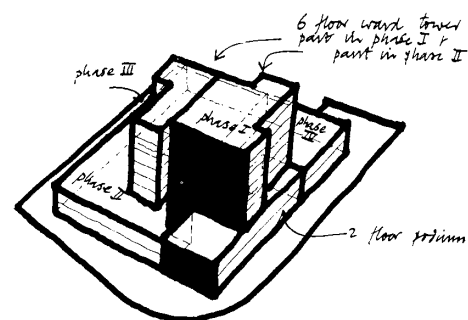 6 floor ward tower
part in phase I &
part in phase II
phase III
phase I
phase III
phase II
2 floor podium